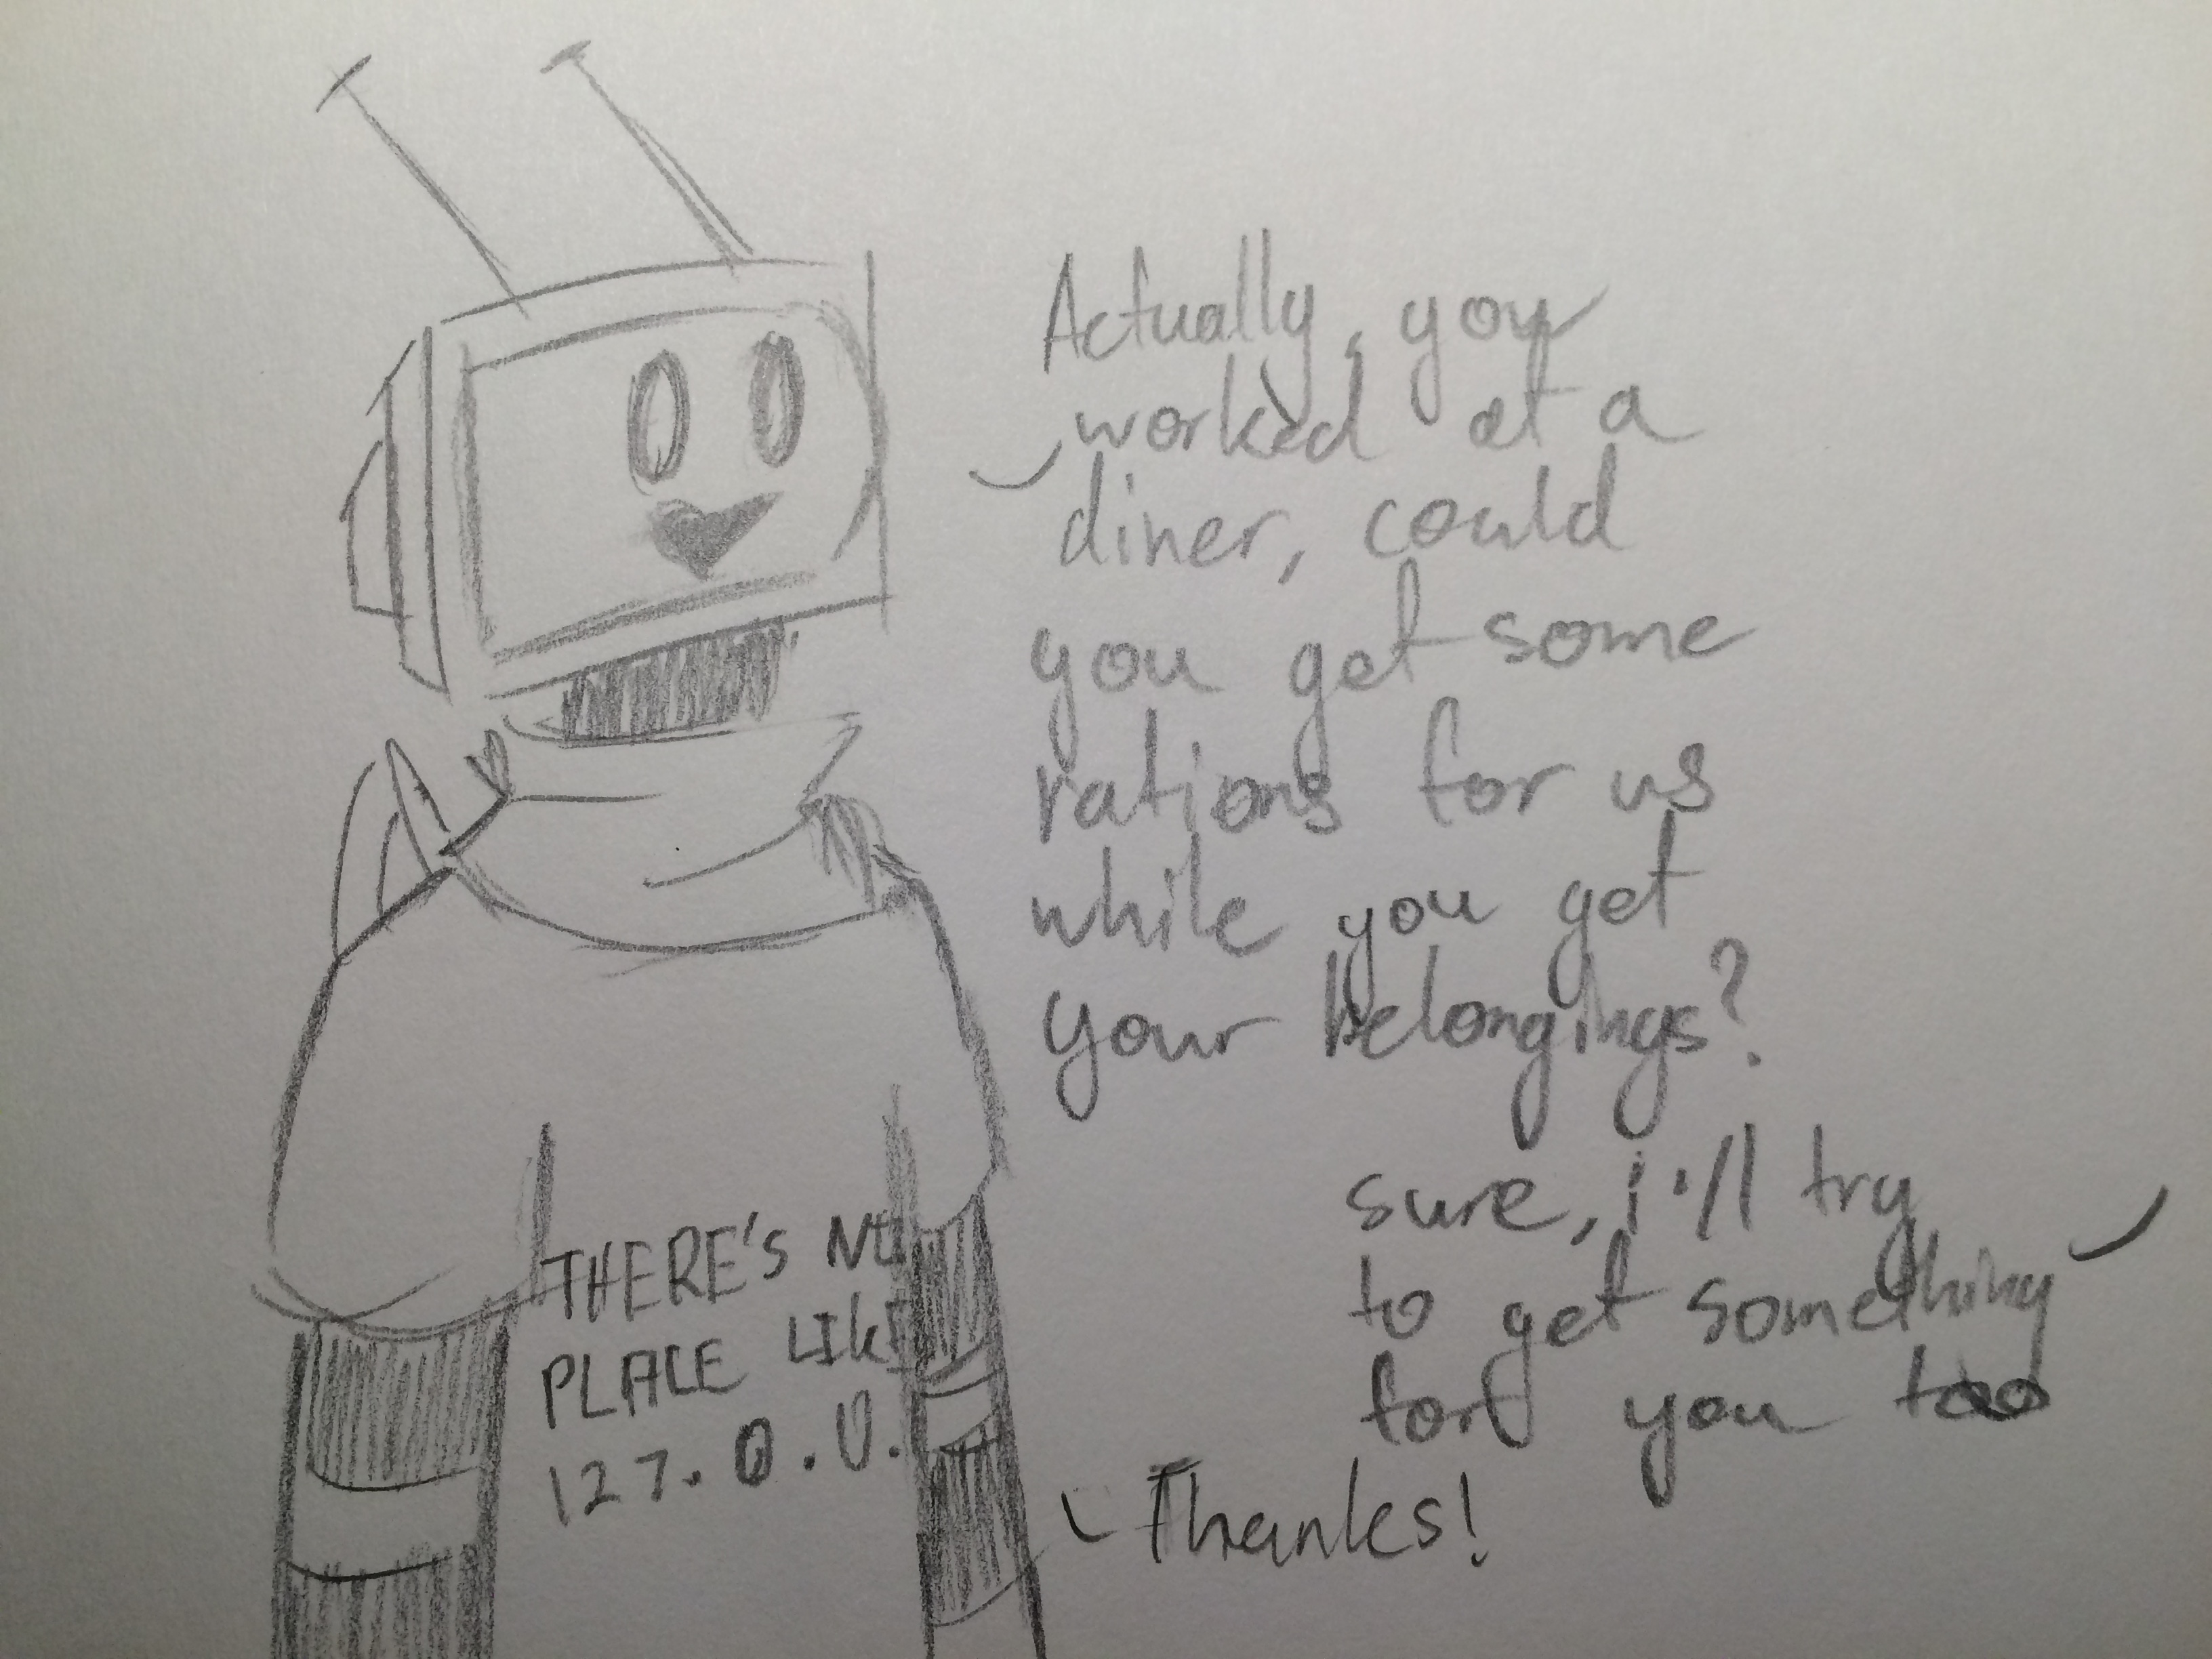 Actually, you
worked at a
diner, could
you get some
rations for us
while you get
your belongings?
sure, i'll try
to get something
for you too
Thanks!
THERE'S NO
PLACE LIKE
127.0.0.